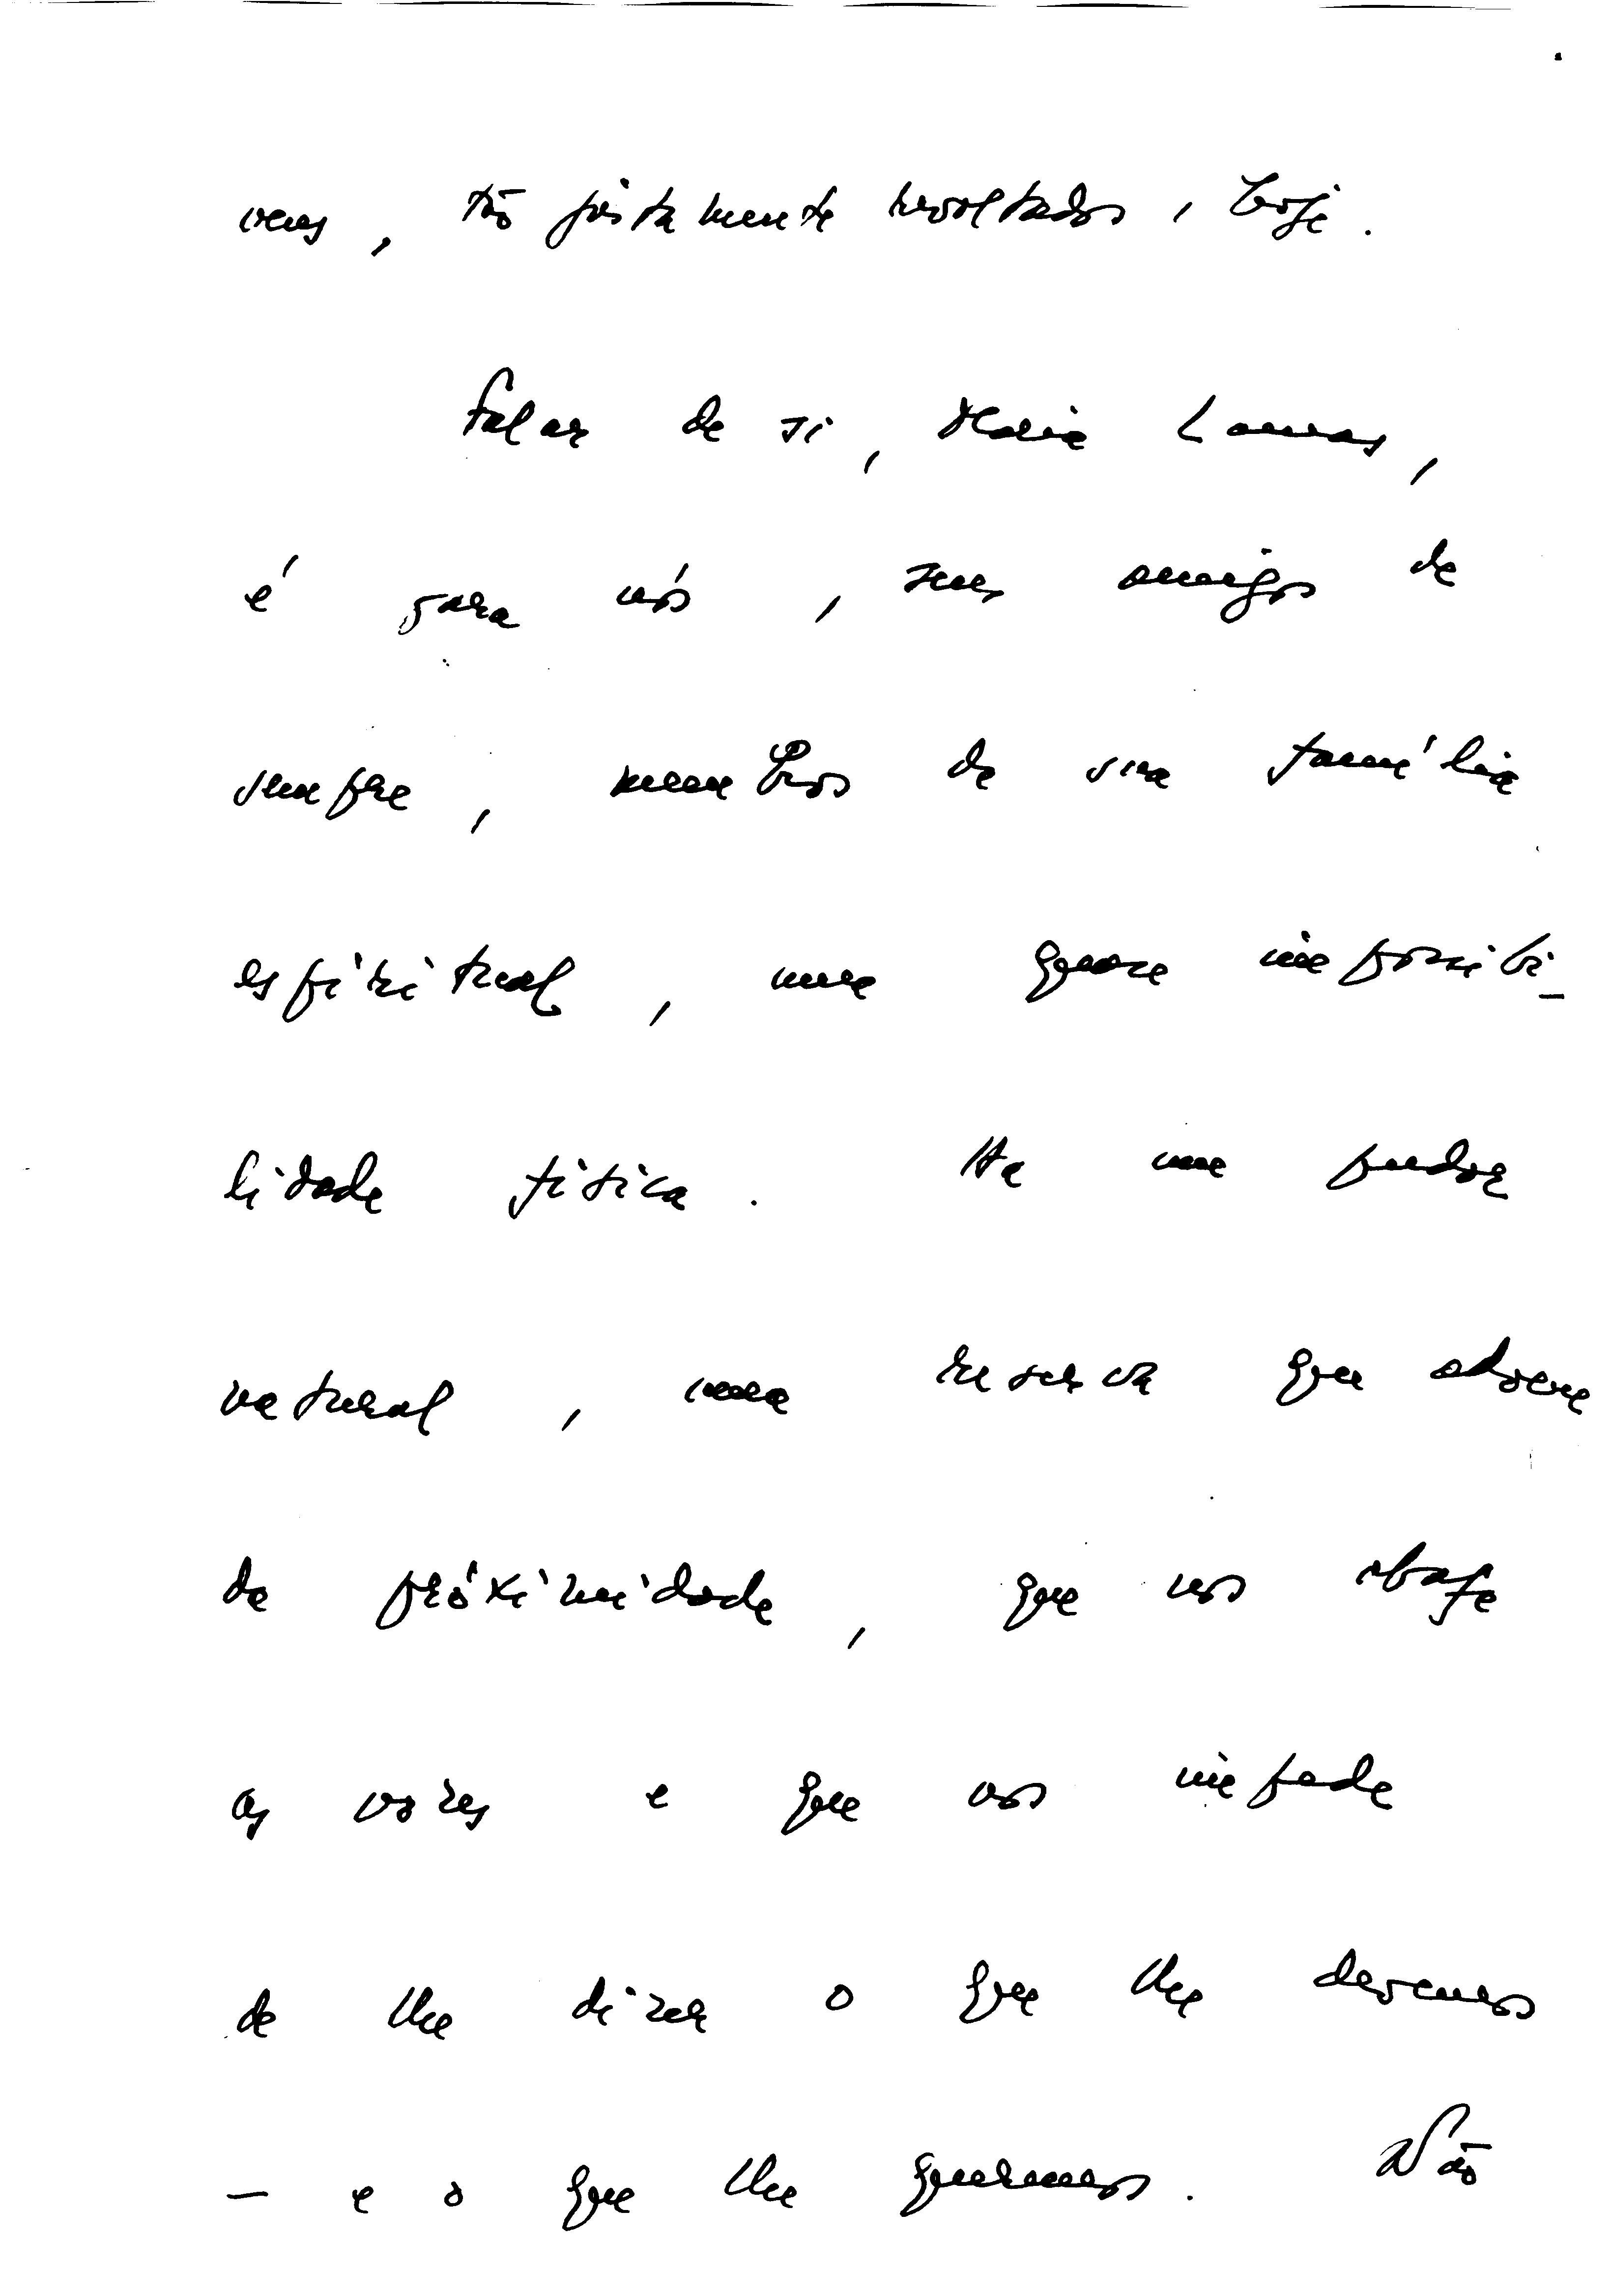 vens, tão justamente revoltados, hoje.
Falar de si, Maria Lamas,
é para nós, seus amigos de
sempre, membros da sua família
espiritual, uma quase impossibi-
lidade física. Há um pudor
natural, uma reserva que advem
da próximidade, que nos abafa
as vozes e que nos impede
de lhe dizer o que lhe devemos
— e o que lhe queremos. Não